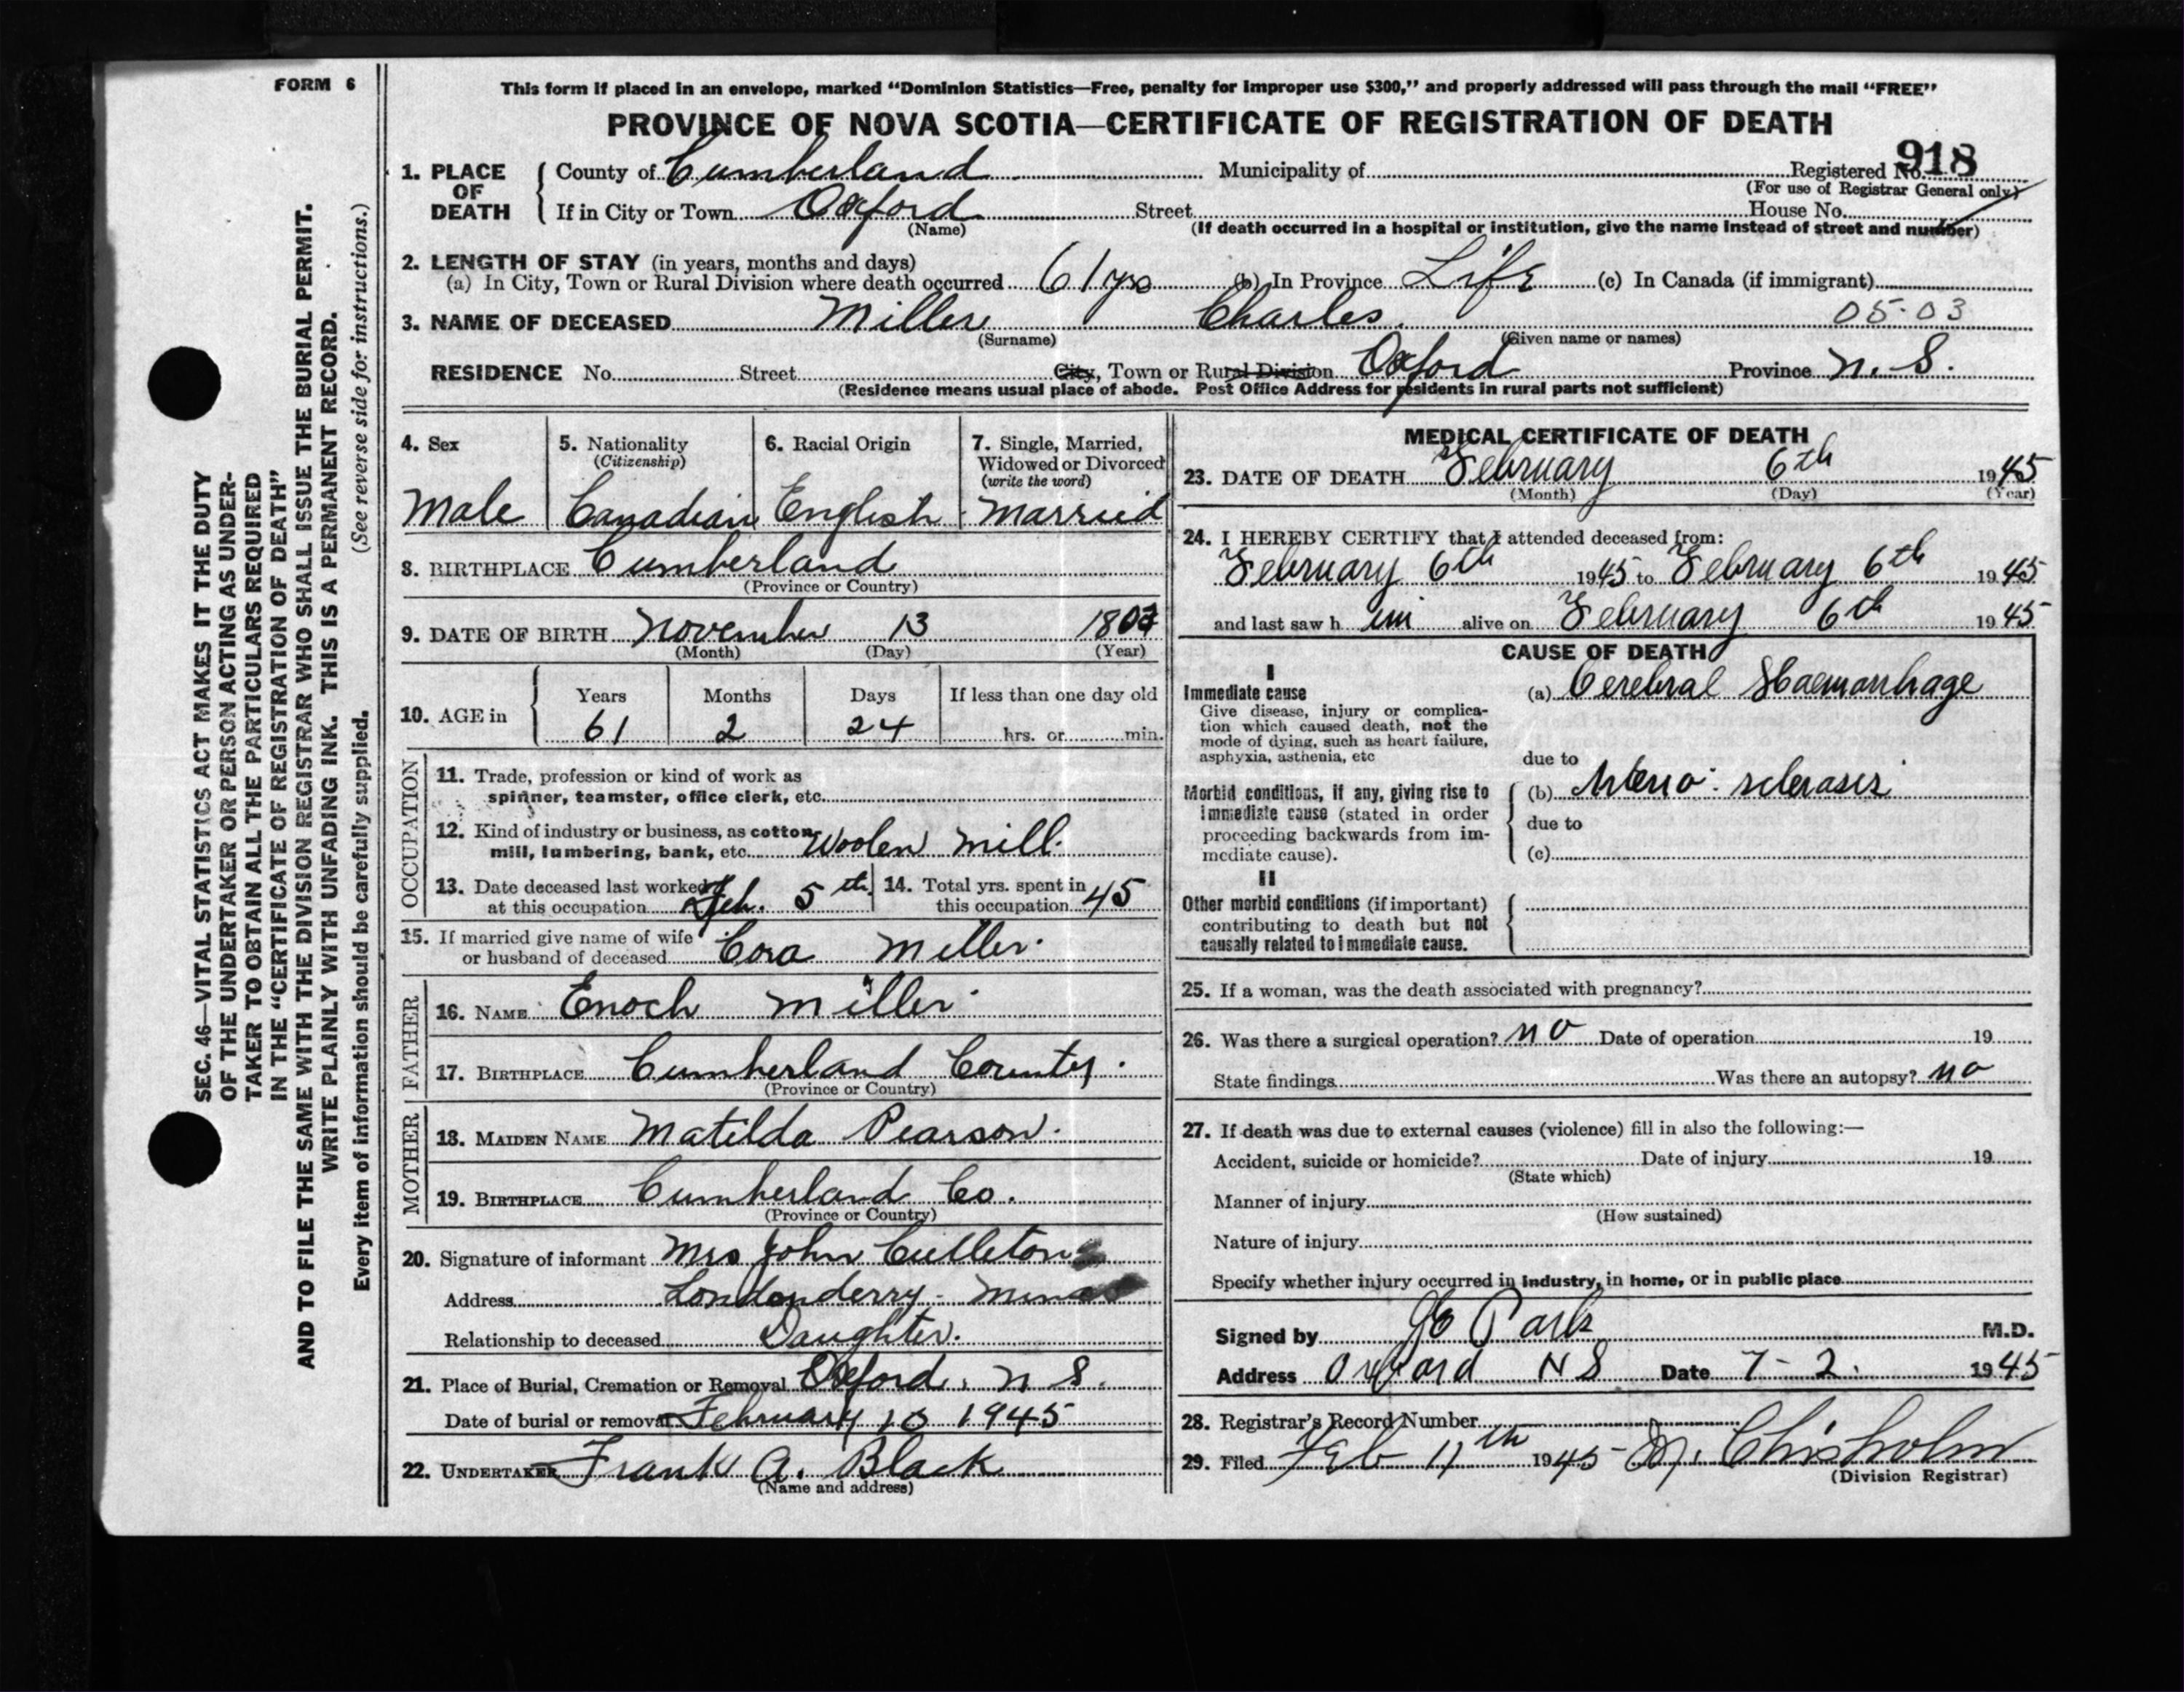 FORM 6
This form if placed in an envelope, marked "Dominion Statistics—Free, penalty for improper use $300," and properly addressed will pass through the mail "FREE"
PROVINCE OF NOVA SCOTIA—CERTIFICATE OF REGISTRATION OF DEATH
SEC. 46—VITAL STATISTICS ACT MAKES IT THE DUTY
OF THE UNDERTAKER OR PERSON ACTING AS UNDER-
TAKER TO OBTAIN ALL THE PARTICULARS REQUIRED
IN THE "CERTIFICATE OF REGISTRATION OF DEATH"
AND TO FILE THE SAME WITH THE DIVISION REGISTRAR WHO SHALL ISSUE THE BURIAL PERMIT.
WRITE PLAINLY WITH UNFADING INK. THIS IS A PERMANENT RECORD.
Every item of information should be carefully supplied. (See reverse side for instructions.)
1. PLACE OF DEATH County of Cumberland Municipality of Registered No. 918
(For use of Registrar General only)
If in City or Town Oxford Street House No.
(Name) (If death occurred in a hospital or institution, give the name instead of street and number)
2. LENGTH OF STAY (in years, months and days)
(a) In City, Town or Rural Division where death occurred 61 yrs (b) In Province Life (c) In Canada (if immigrant)
3. NAME OF DECEASED Miller Charles 05-03
(Surname) (Given name or names)
RESIDENCE No. Street City, Town or Rural Division Oxford Province N. S.
(Residence means usual place of abode. Post Office Address for residents in rural parts not sufficient)
4. Sex 5. Nationality 6. Racial Origin 7. Single, Married,
(Citizenship) Widowed or Divorced
(write the word)
Male Canadian English Married
8. BIRTHPLACE Cumberland
(Province or Country)
9. DATE OF BIRTH November 13
(Month) (Day) (Year)
Years Months Days If less than one day old
10. AGE in 61 2 24 hrs. or min.
OCCUPATION
11. Trade, profession or kind of work as
spinner, teamster, office clerk, etc.
12. Kind of industry or business, as cotton
mill, lumbering, bank, etc. Woolen Mill.
13. Date deceased last worked 14. Total yrs. spent in
at this occupation Feb. 5th this occupation 45
15. If married give name of wife
or husband of deceased Cora Miller.
FATHER
16. NAME Enoch Miller
17. BIRTHPLACE Cumberland County.
(Province or Country)
MOTHER
18. MAIDEN NAME Matilda Pearson.
19. BIRTHPLACE Cumberland Co.
(Province or Country)
20. Signature of informant Mrs John Culleton
Address Londonderry - Mines
Relationship to deceased Daughter.
21. Place of Burial, Cremation or Removal Oxford, N S.
Date of burial or removal February 10 1945
22. UNDERTAKER Frank A. Black
(Name and address)
MEDICAL CERTIFICATE OF DEATH
23. DATE OF DEATH February 6th 1945
(Month) (Day) (Year)
24. I HEREBY CERTIFY that I attended deceased from:
February 6th 1945 to February 6th 1945
and last saw h im alive on February 6th 1945
CAUSE OF DEATH
I
Immediate cause (a) Cerebral Haemorrhage
Give disease, injury or complica-
tion which caused death, not the
mode of dying, such as heart failure,
asphyxia, asthenia, etc due to
Morbid conditions, if any, giving rise to (b) Arterio-sclerosis
immediate cause (stated in order due to
proceeding backwards from im-
mediate cause). (c)
II
Other morbid conditions (if important)
contributing to death but not
causally related to immediate cause.
25. If a woman, was the death associated with pregnancy?
26. Was there a surgical operation? no Date of operation 19
State findings Was there an autopsy? no
27. If death was due to external causes (violence) fill in also the following:—
Accident, suicide or homicide? Date of injury 19
(State which)
Manner of injury
(How sustained)
Nature of injury
Specify whether injury occurred in industry, in home, or in public place
Signed by Park M.D.
Address Oxford N S Date 7-2. 1945
28. Registrar's Record Number
29. Filed Feb 11th 1945 Chisholm
(Division Registrar)